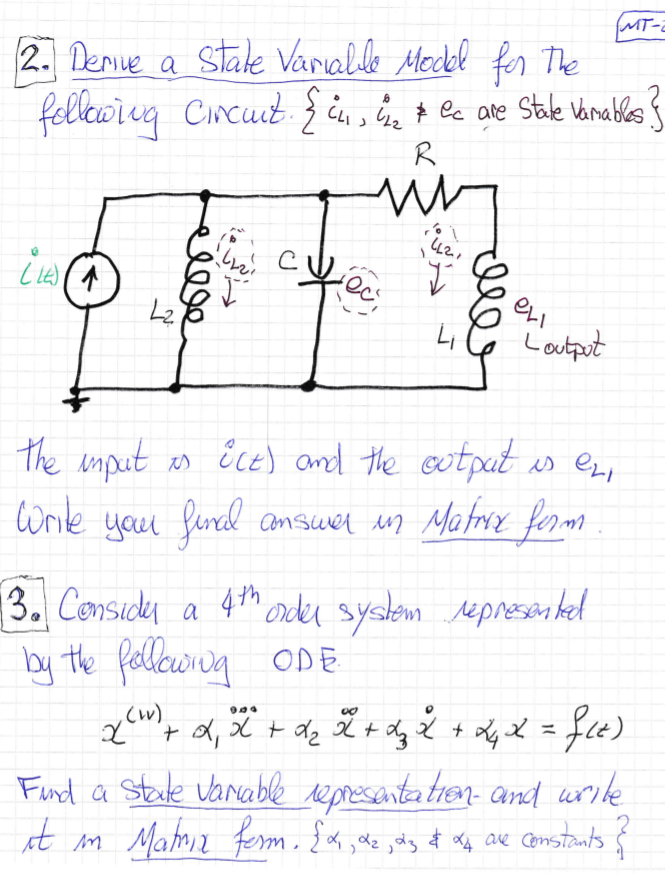 MT-2
2. Derive a State Variable Model for the
following Circuit. { i_L1, i_L2 & e_c are State Variables }
R
i(t)
L2
i_L2
C
e_c
i_L2
L1
e_L1
output
The input is i(t) and the output is e_L1
Write your final answer in Matrix form.
3. Consider a 4th order system represented
by the following ODE.
x^(IV) + α₁ x⃛ + α₂ ẍ + α₃ ẋ + α₄ x = f(t)
Find a State Variable representation and write
it in Matrix form. { α₁, α₂, α₃ & α₄ are constants }